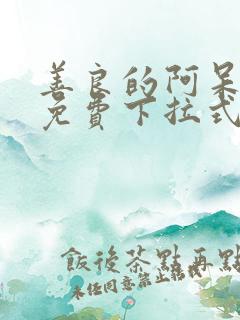 善良的阿呆
免費下拉式
飯後茶點再點
未經同意禁止